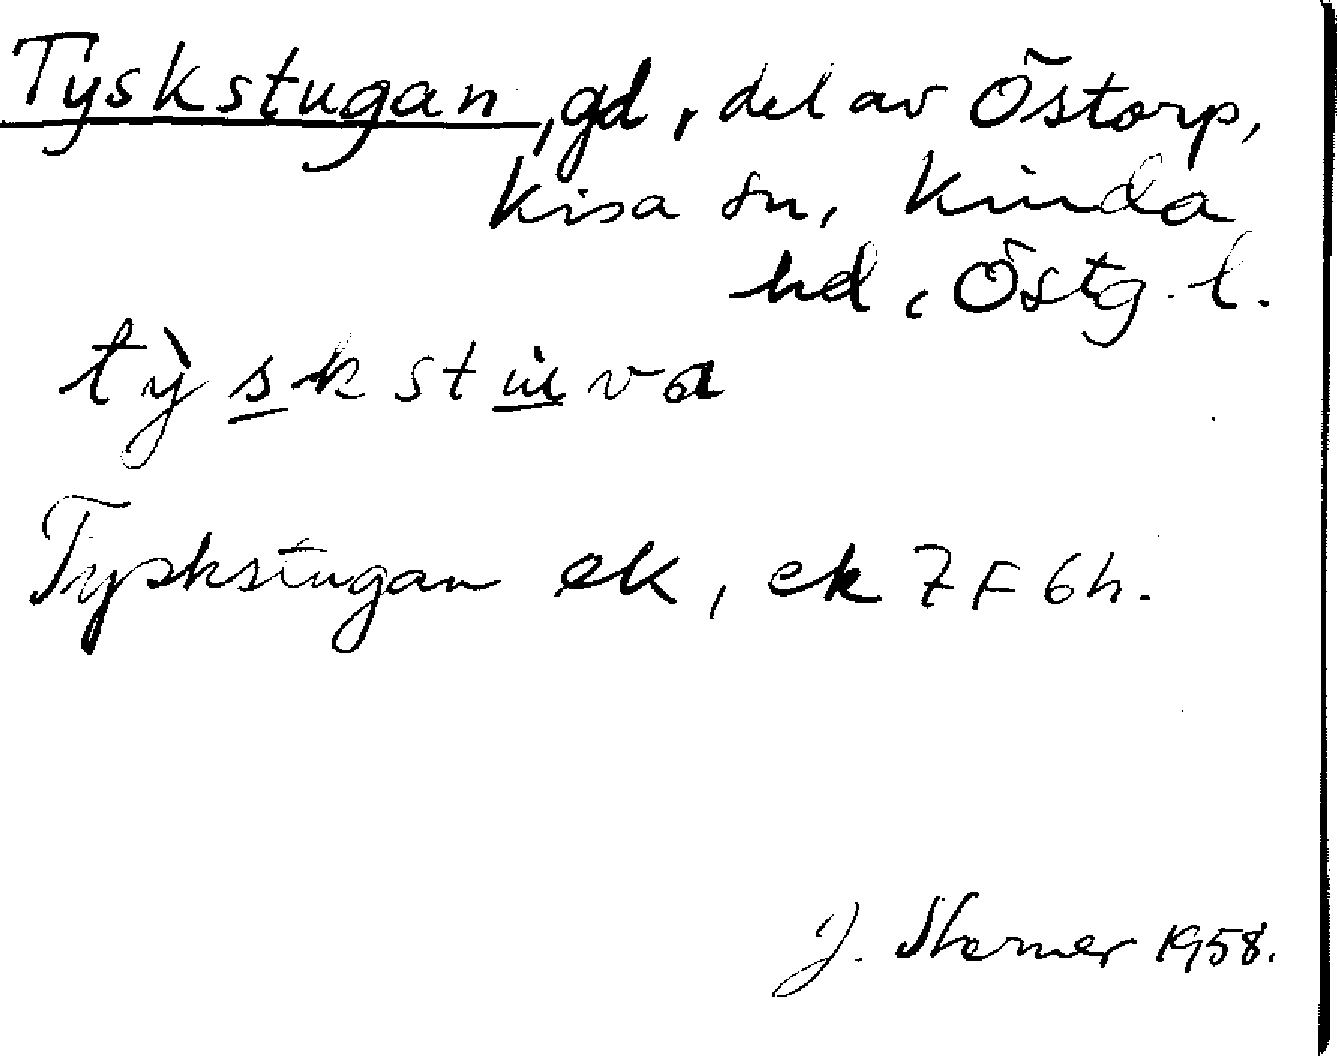 Tyskstugan, gd, del av Östorp,
Kisa sn, Kinda
hd, Östg. l.
tỳskstu̇va
Tyskstugan ek, ek 7 F 6h.
J. Sterner 1958.